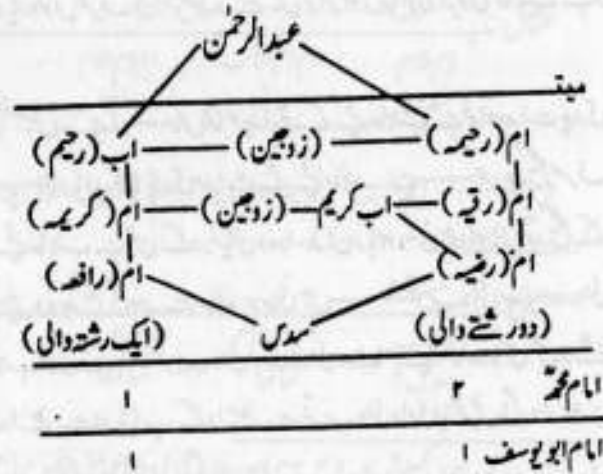 عبدالرحمٰن
میتـ
ام (رحیمہ) (زوجین) اب (رحیم)
ام (رقیہ) اب کریم (زوجین) ام (کریمہ)
ام (رضیہ) ام (رافعہ)
(دورشتے والی) سدس (ایک رشتہ والی)
امام محمدؒ ۲ ۱
امام ابو یوسف ۱ ۱